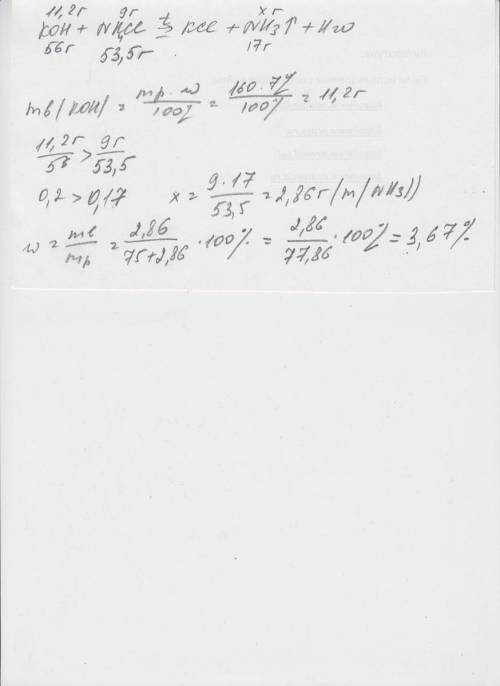 11,2г 9г x г
KOH + NH4Cl t= KCl + NH3↑ + H2O
56г 53,5г 17г
mв(KOH) = mp · w / 100% = 160 · 7% / 100% = 11,2г
11,2г / 56 > 9г / 53,5
0,2 > 0,17 x = 9 · 17 / 53,5 = 2,86г (m(NH3))
w = mв / mp = 2,86 / 75+2,86 · 100% = 2,86 / 77,86 · 100% = 3,67%